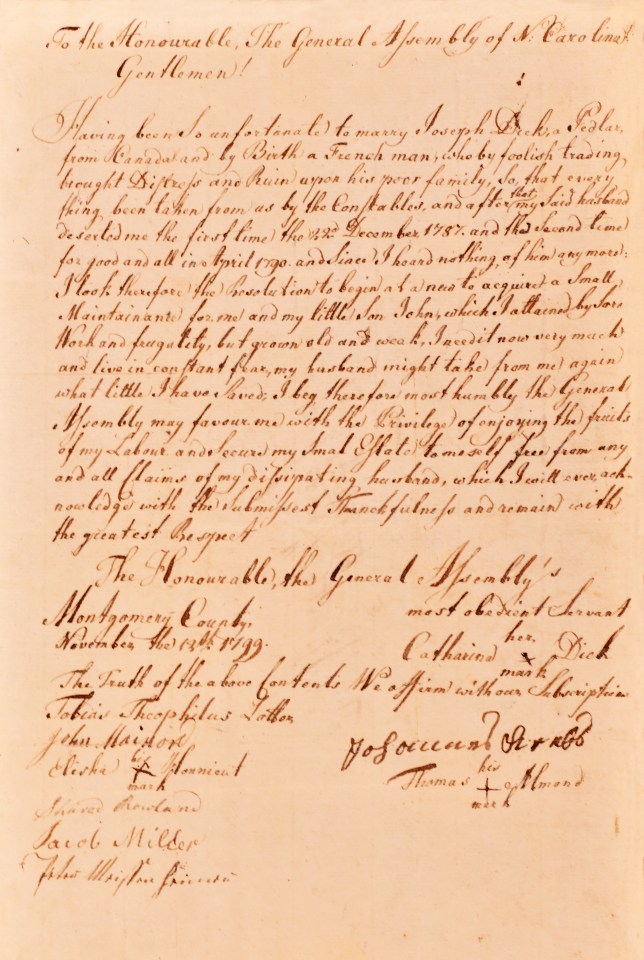 To the Honourable, The General Assembly of N. Carolina!
Gentlemen!
Having been so unfortunate to marry Joseph Dick, a Pedlar,
from Canada and by Birth a French man, who by foolish trading,
brought Distress and Ruin upon his poor family, So, that every
thing been taken from us by the Constables, and after that my Said husband
deserted me the first time the 22d December 1787. and the Second time
for good and all in April 1790. and Since I heard nothing of him any more:
I took therefore the Resolution to begin at a new to acquire a Small
Maintainance for me and my little Son John, which I attained by Sore
Work and frugality, but grown old and weak, I need it now very much
and live in constant fear, my husband might take from me again
what little I have Saved; I beg therefore most humbly the General
Assembly may favour me with the Privilege of enjoying the fruits
of my Labour and Secure my Smal Estate to meself free from any
and all Claims of my dissipating husband, which I will ever ack-
nowledge with the Submissest Thanckfulness and remain with
the greatest Respect
The Honourable, the General Assembly's
most obedient Servant
Montgomery County,
November the 13th 1799.
Catharina her X mark Dick
The Truth of the above Contents We affirm with our Subscription
Tobias Theophilus
John
Elisha his X mark
Thomas his + mark Almond
Rowland
Jacob Miller